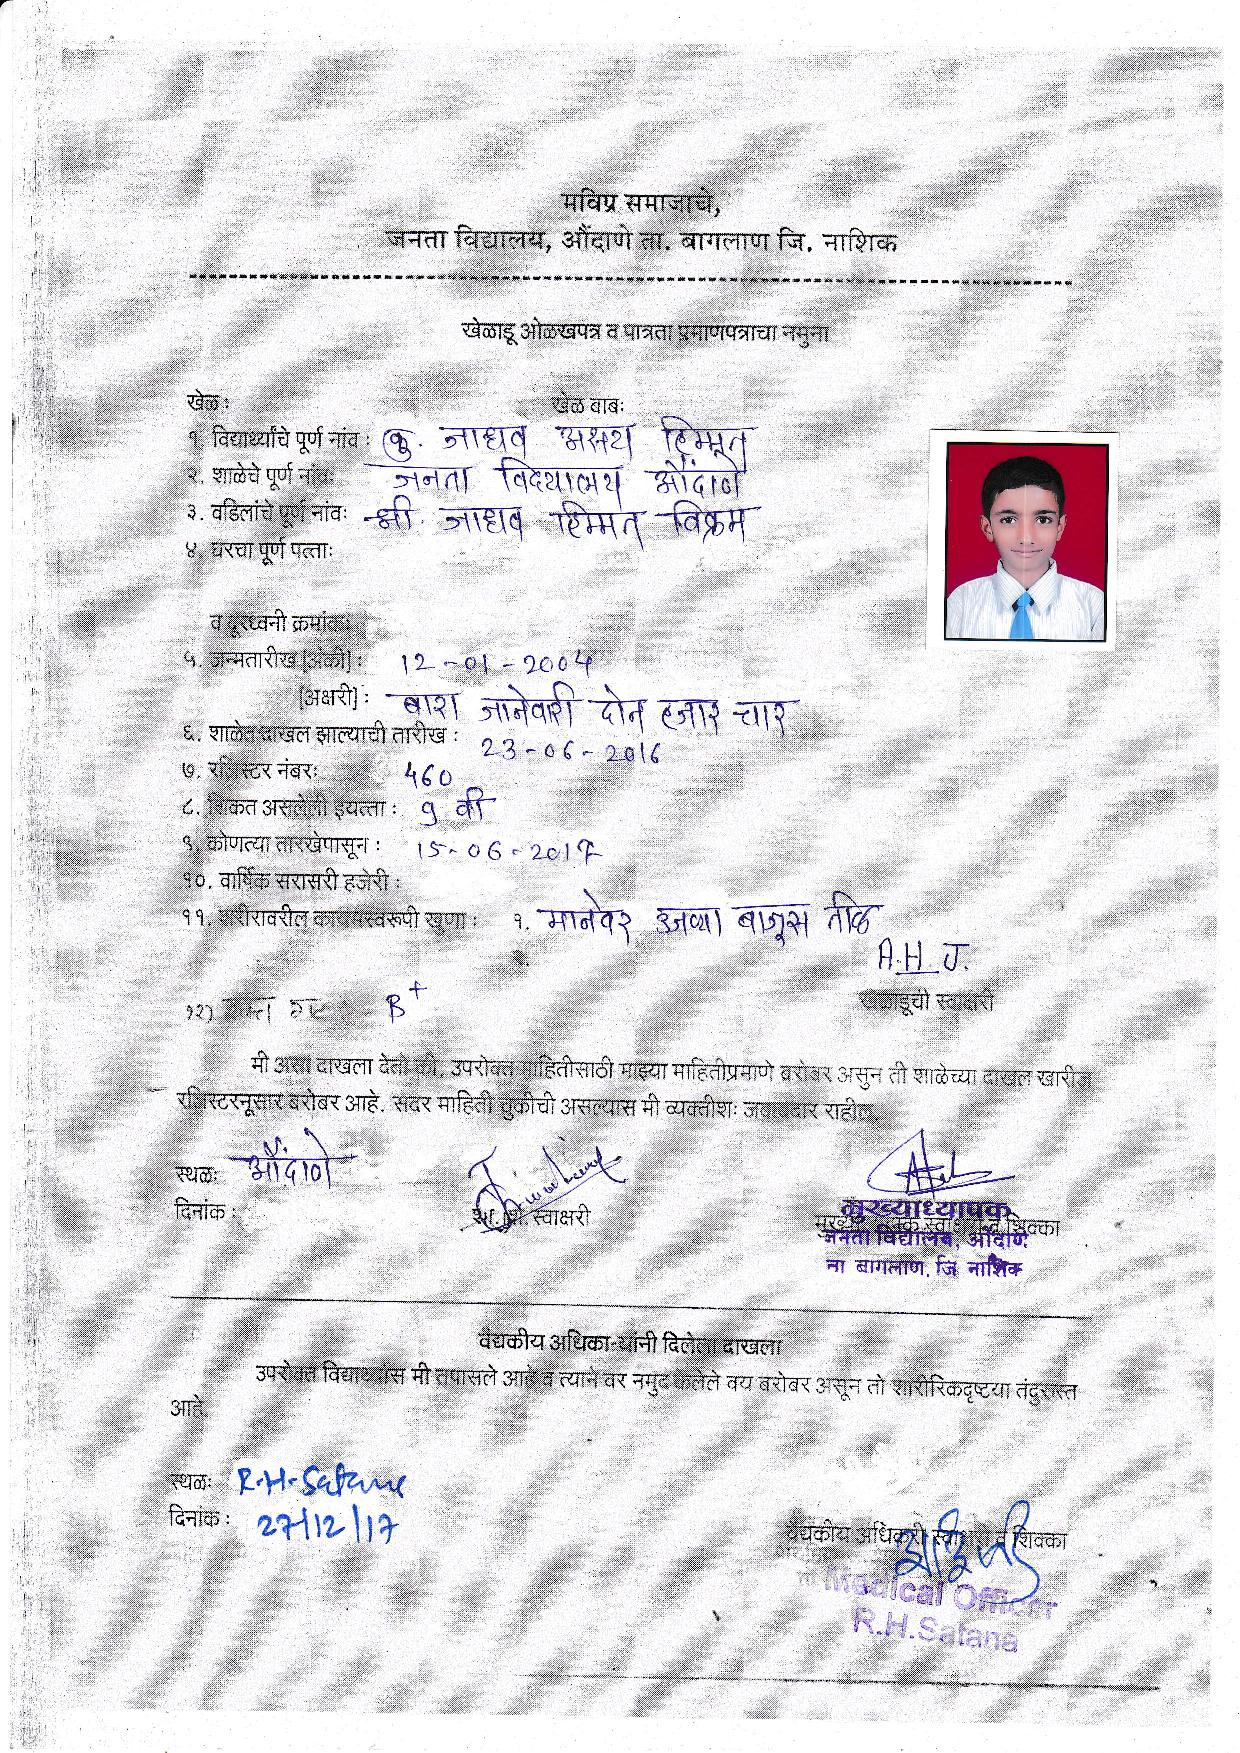 मविप्र समाजाचे,
जनता विद्यालय, औंदाणे ता. बागलाण जि. नाशिक
खेळाडू ओळखपत्र व पात्रता प्रमाणपत्राचा नमुना
खेळ : खेळ बाबः
१. विद्यार्थ्यांचे पूर्ण नांव : कु. जाधव अक्षय हिम्मत
२. शाळेचे पूर्ण नांवः जनता विद्यालय औंदाणे
३. वडिलांचे पूर्ण नांवः श्री. जाधव हिम्मत विक्रम
४. घरचा पूर्ण पत्ताः
व दूरध्वनी क्रमांक
५. जन्मतारीख [अंकी] : 12-01-2004
[अक्षरी] : बारा जानेवारी दोन हजार चार
६. शाळेत दाखल झाल्याची तारीख : 23-06-2016
७. रजिस्टर नंबरः 460
८. शिकत असलेली इयत्ता : 9 वी
९. कोणत्या तारखेपासून : 15-06-2017
१०. वार्षिक सरासरी हजेरी :
११. शरीरावरील कायमस्वरूपी खुणा : १. मानेवर उजव्या बाजूस तीळ
A.H.J.
खेळाडूची स्वाक्षरी
१२) रक्त गट B+
मी असा दाखला देतो की, उपरोक्त माहितीसाठी माझ्या माहितीप्रमाणे बरोबर असुन ती शाळेच्या दाखल खारीज
रजिस्टरनूसार बरोबर आहे. सदर माहिती चुकीची असल्यास मी व्यक्तीशः जबाबदार राहील.
स्थळः औंदाणे
दिनांक : शा. शि. स्वाक्षरी मुख्याध्यापक स्वाक्षरी व शिक्का
मुख्याध्यापक
जनता विद्यालय, औंदाणे
ता बागलाण, जि नाशिक
वैद्यकीय अधिका-यांनी दिलेला दाखला
उपरोक्त विद्यार्थ्यास मी तपासले आहे व त्याने वर नमुद केलेले वय बरोबर असून तो शारीरिकदृष्टया तंदुरुस्त
आहे.
स्थळः R.H-Satana
दिनांक : 27/12/17
वैद्यकीय अधिकारी स्वाक्षरी व शिक्का
Medical Officer
R.H.Satana